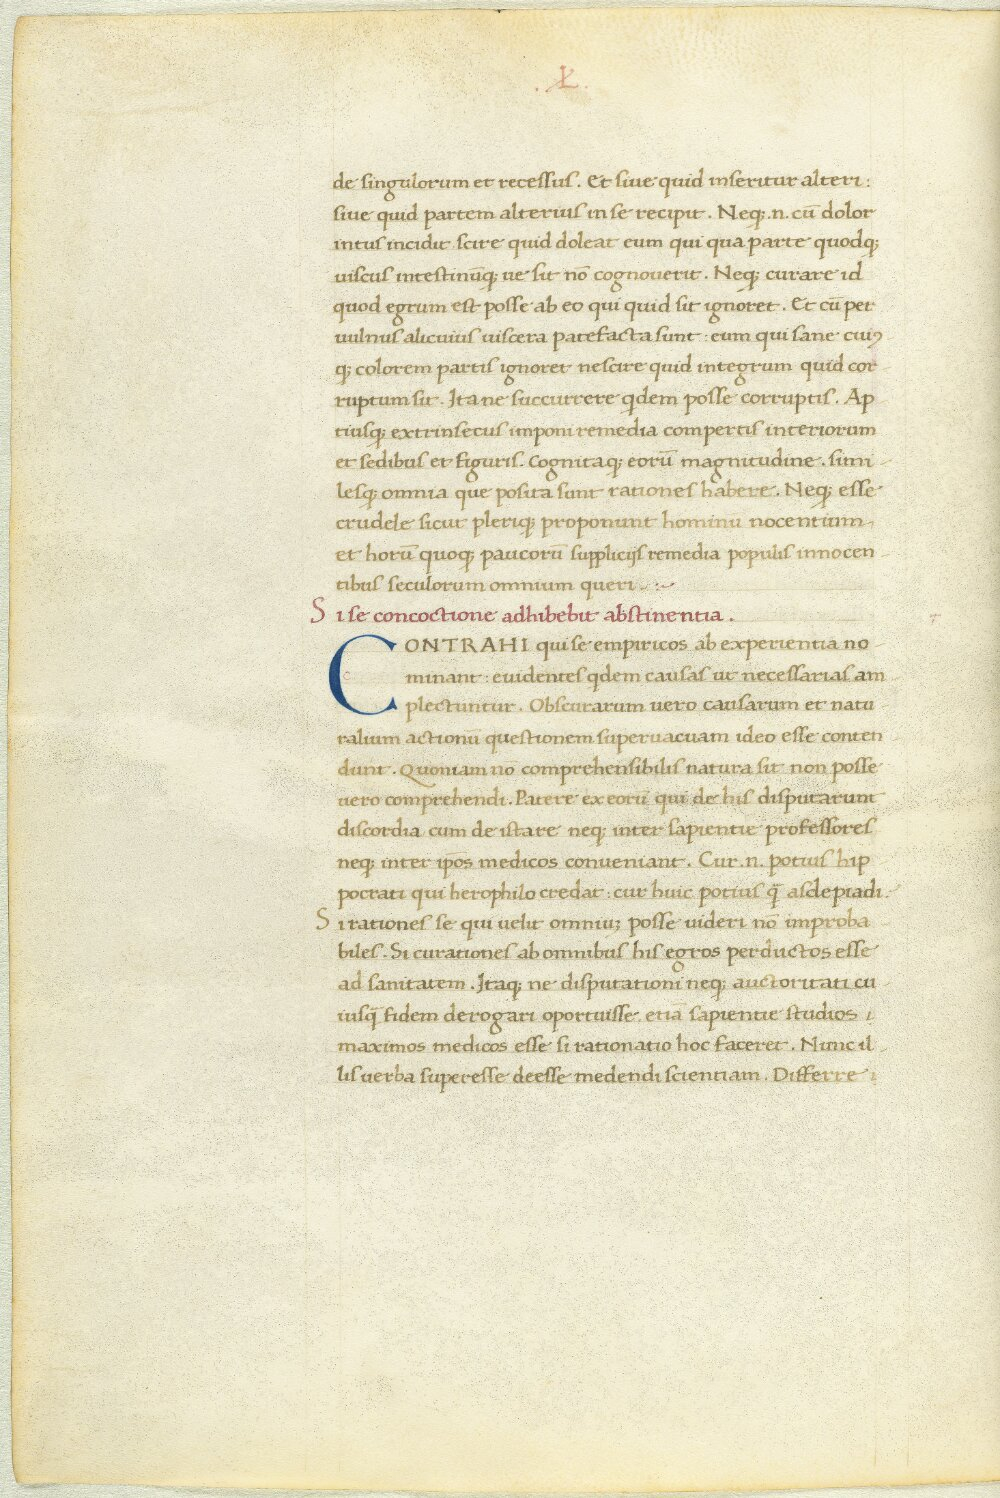 .X.
de singulorum et recessus. Et siue quid inseritur alteri:
siue quid partem alterius in se recipit. Neq;.n. cū dolor
intus incidit scire quid doleat eum qui qua parte quodq;
uiscus intestinūq; ue sit nō cognouerit. Neq; curare id
quod egrum est posse ab eo qui quid sit ignoret. Et cū per
uulnus alicuius uiscera patefacta sunt: eum qui sane cuiꝰ
q; colorem partis ignoret nescire quid integrum quid cor
ruptum sit. Ita ne succurrere qdem posse corruptis. Ap
tiusq; extrinsecus imponi remedia compertis interiorum
et sedibus et figuris. Cognitaq; eorū magnitudine. simi
lesq; omnia que posita sunt rationes habere. Neq; esse
crudele sicut pleriq; proponunt hominū nocentium
et horū quoq; paucorū supplicijs remedia populis innocen
tibus seculorum omnium queri
Si se concoctione adhibebit abstinentia.
CONTRAHI qui se empiricos ab experientia no
minant: euidentes qdem causas ut necessarias am
plectuntur. Obscurarum uero causarum et natu
ralium actionū questionem superuacuam ideo esse conten
dunt. Quoniam nō comprehensibilis natura sit non posse
uero comprehendi. Patere ex eorū qui de his disputarunt
discordia cum de ista re neq; inter sapientie professores
neq; inter ip̄os medicos conueniant. Cur.n. potius hip
pocrati qui herophilo credat: cur huic potius q̄ asclepiadi.
Si rationes se qui uelit omniuꝫ posse uideri nō improba
biles. Si curationes ab omnibus his egros perductos esse
ad sanitatem. Itaq; ne disputationi neq; auctoritati cu
iusq̄ fidem derogari oportuisse. etiā sapientie studios i
maximos medicos esse si rationatio hoc faceret. Nunc il
lis uerba superesse deesse medendi scientiam. Differre i